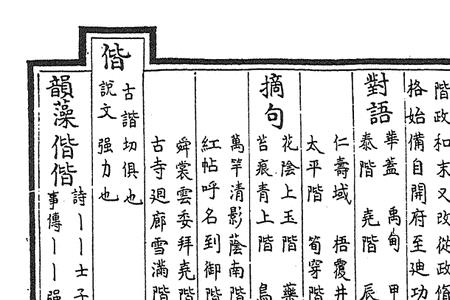 階政和末又改從政
格始備自開府至廸功
對語
華蓋 禹甸 甲
泰階 堯階 辰
仁壽域 梧覆井
太平階 筍穿階
摘句
花陰上玉階 藥
苔痕青上階 鳥
萬竿清影蔭南階
紅帖呼名到御階
舜裳雲委拜堯階
古寺廻廊雪滿階
偕
古諧切俱也
說文 强力也
韻藻
偕偕
詩丨丨士子
事傳丨丨强